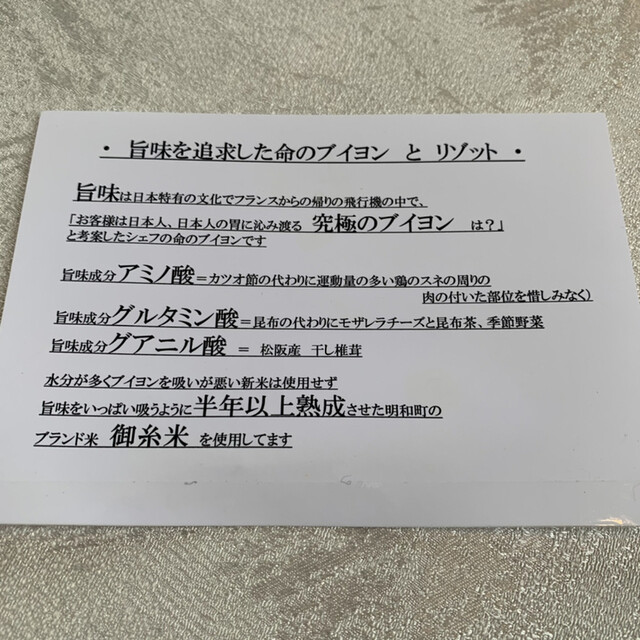 ・ 旨味を追求した命のブイヨン と リゾット ・
旨味は日本特有の文化でフランスからの帰りの飛行機の中で、
「お客様は日本人、日本人の胃に沁み渡る 究極のブイヨン は？」
と考案したシェフの命のブイヨンです
旨味成分アミノ酸＝カツオ節の代わりに運動量の多い鶏のスネの周りの
肉の付いた部位を惜しみなく）
旨味成分グルタミン酸＝昆布の代わりにモザレラチーズと昆布茶、季節野菜
旨味成分グアニル酸 ＝ 松阪産 干し椎茸
水分が多くブイヨンを吸いが悪い新米は使用せず
旨味をいっぱい吸うように半年以上熟成させた明和町の
ブランド米 御糸米 を使用してます